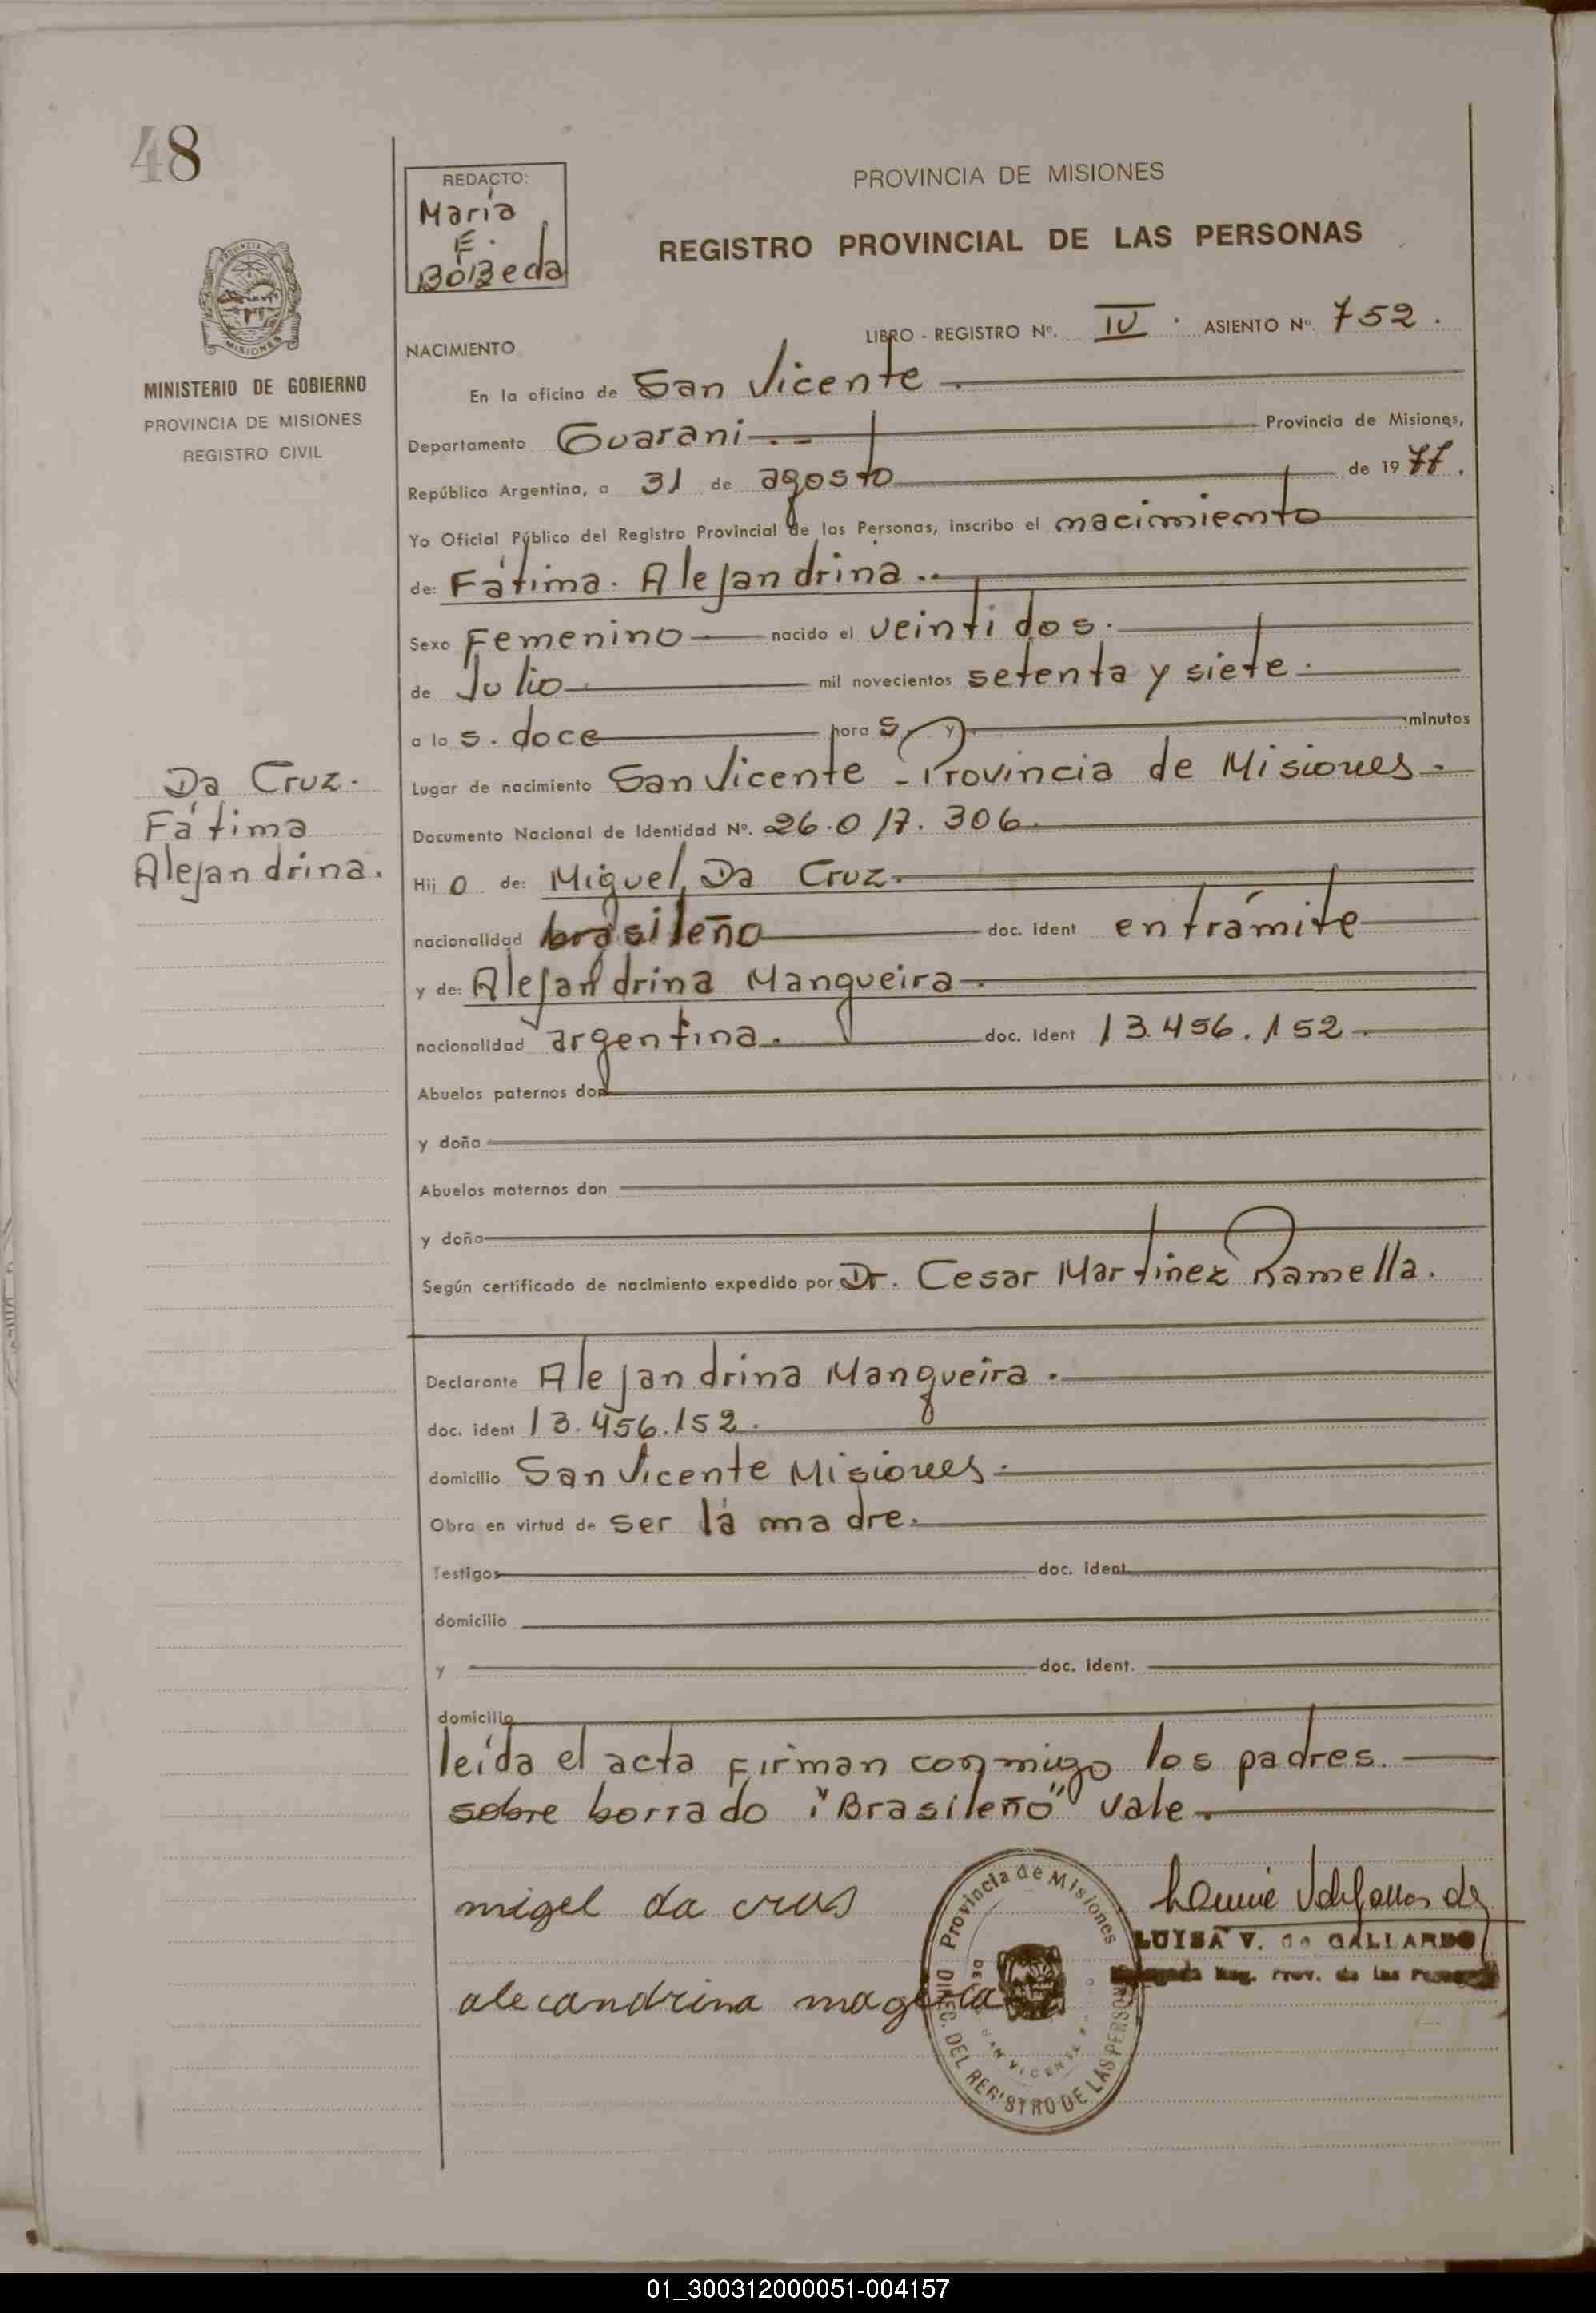 48
REDACTO:
Maria
E.
BoBeda
PROVINCIA DE MISIONES
REGISTRO PROVINCIAL DE LAS PERSONAS
PROVINCIA
MISIONES
MINISTERIO DE GOBIERNO
PROVINCIA DE MISIONES
REGISTRO CIVIL
LIBRO - REGISTRO Nº. IV. ASIENTO Nº. 752.
NACIMIENTO
En la oficina de San Vicente.
Departamento Guarani Provincia de Misiones,
República Argentina, a 31 de agosto de 1977.
Yo Oficial Público del Registro Provincial de las Personas, inscribo el nacimiento
de: Fátima. Alejandrina..
Sexo Femenino nacido el veintidos.
de Julio mil novecientos setenta y siete.
a las. doce horas y minutos
Lugar de nacimiento San Vicente - Provincia de Misiones.
Documento Nacional de Identidad Nº. 26.017.306.
Da Cruz.
Fátima
Alejandrina.
Hijo de: Miguel Da Cruz.
nacionalidad brasileño doc. ident en trámite
y de: Alejandrina Mangueira.
nacionalidad argentina. doc. ident 13.456.152.
Abuelos paternos don
y doña
Abuelos maternos don
y doña
Según certificado de nacimiento expedido por Dr. Cesar Martinez Ramella.
Declarante Alejandrina Mangueira.
doc. ident 13.456.152.
domicilio San Vicente Misiones.
Obra en virtud de ser la madre.
Testigos doc. ident
domicilio
y doc. ident.
domicilio
leída el acta Firman conmigo los padres.
sobre borrado "Brasileño" vale.
migel da crus
alecandrina
Provincia de Misiones
DIREC. DEL REGISTRO DE LAS PERSONAS
SAN VICENTE
LUISA V. de GALLARDO
Reg. Prov. de las
01_300312000051-004157